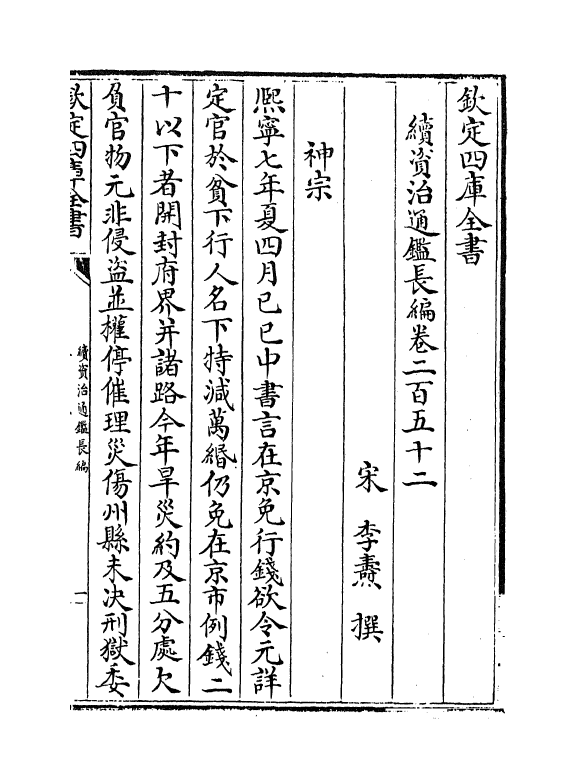 欽定四庫全書
續資治通鑑長編卷二百五十二
宋 李燾 撰
神宗
熙寧七年夏四月已巳中書言在京免行錢欲令元詳
定官於貧下行人名下特減萬緡仍免在京市例錢二
十以下者開封府界并諸路今年旱災約及五分處欠
負官物元非侵盜並權停催理災傷州縣未決刑獄委
欽定四庫全書
續資治通鑑長編
一